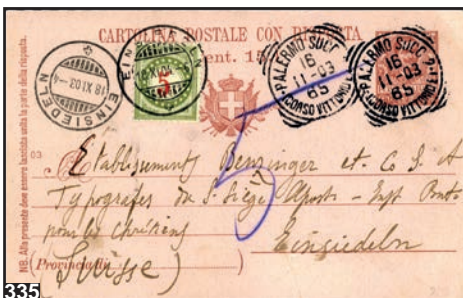 CARTOLINA POSTALE CON RISPOSTA
Cent. 15
NB. Alla presente deve essere lasciata unita la parte della risposta.
EINSIEDELN
18 XI.03.-4
EINSIEDELN
5
PALERMO SUCC. 2
16
11-03
6S
(CORSO VITTORIO E.)
PALERMO SUCC. 2
16
11-03
6S
(CORSO VITTORIO E.)
03
Etablissements Benzinger et. Co S. A
Typografes du S. Siège Apost.
pour les chrétiens
Einsiedeln
(Provincia di
Suisse)
335